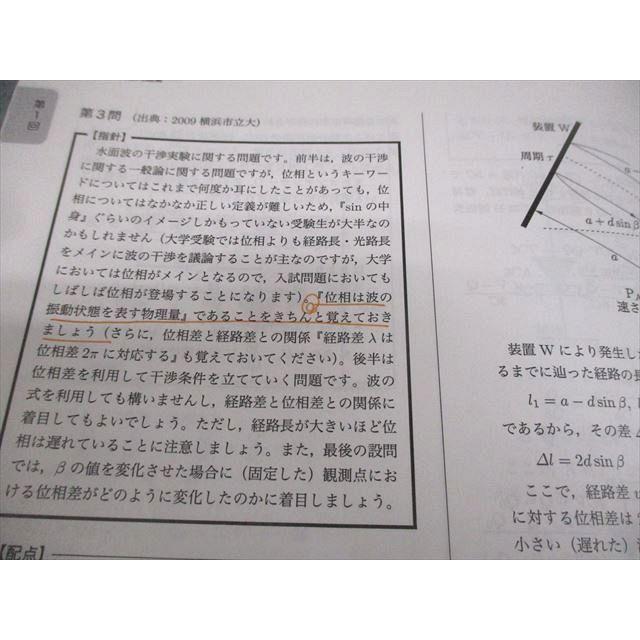 第1回
第3問 (出典:2009 横浜市立大)
【指針】
水面波の干渉実験に関する問題です。前半は，波の干渉
に関する一般論に関する問題ですが，位相というキーワー
ドについてはこれまで何度か耳にしたことがあっても，位
相についてはなかなか正しい定義が難しいため，『sinの中
身』ぐらいのイメージしかもっていない受験生が大半なの
かもしれません（大学受験では位相よりも経路長・光路長
をメインに波の干渉を議論することが主なのですが，大学
においては位相がメインとなるので，入試問題においても
しばしば位相が登場することになります）。『位相は波の
振動状態を表す物理量』であることをきちんと覚えておき
ましょう（さらに，位相差と経路差との関係『経路差λは
位相差2πに対応する』も覚えておいてください）。後半は
位相差を利用して干渉条件を立てていく問題です。波の
式を利用しても構いませんし，経路差と位相差との関係に
着目してもよいでしょう。ただし，経路長が大きいほど位
相は遅れていることに注意しましょう。また，最後の設問
では，βの値を変化させた場合に（固定した）観測点にお
ける位相差がどのように変化したのかに着目しましょう。
【配点】
装置W
周期τ
a+d sinβ
a
P
速さ
装置Wにより発生し
るまでに辿った経路の長
l₁ = a − d sinβ,
であるから，その差
Δl = 2d sinβ
ここで，経路差
に対する位相差は
小さい（遅れた）